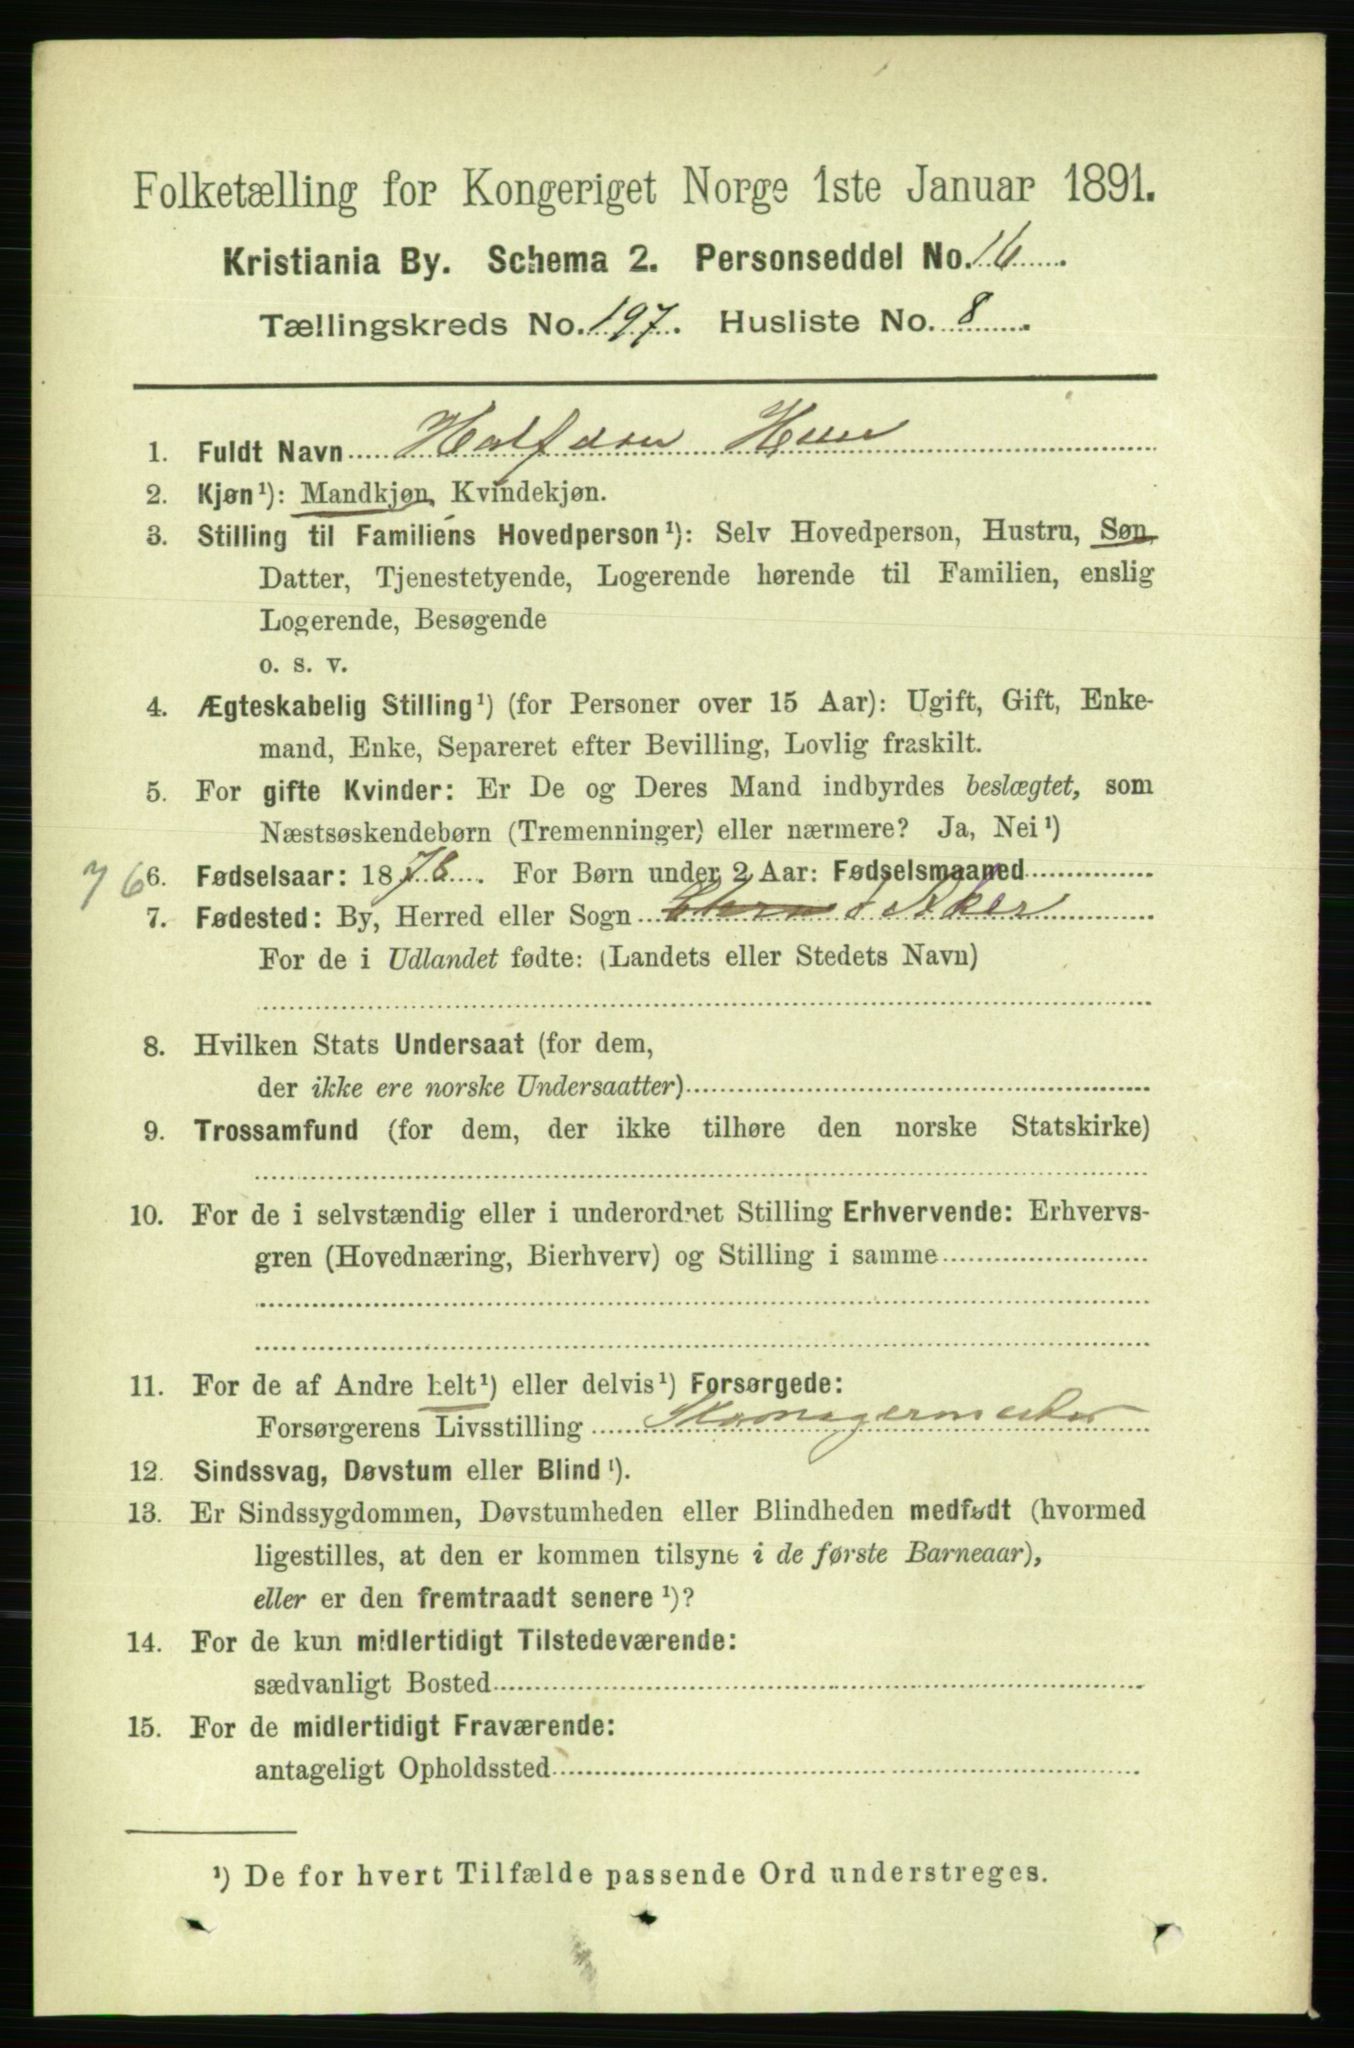 Folketælling for Kongeriget Norge 1ste Januar 1891.
Kristiania By. Schema 2. Personseddel No. 16
Tællingskreds No. 197. Husliste No. 8
1. Fuldt Navn Halfdan
2. Kjøn¹): Mandkjøn, Kvindekjøn.
3. Stilling til Familiens Hovedperson¹): Selv Hovedperson, Hustru, Søn,
Datter, Tjenestetyende, Logerende hørende til Familien, enslig
Logerende, Besøgende
o. s. v.
4. Ægteskabelig Stilling¹) (for Personer over 15 Aar): Ugift, Gift, Enke-
mand, Enke, Separeret efter Bevilling, Lovlig fraskilt.
5. For gifte Kvinder: Er De og Deres Mand indbyrdes beslægtet, som
Næstsøskendebørn (Tremenninger) eller nærmere? Ja, Nei¹)
76
6. Fødselsaar: 1876. For Børn under 2 Aar: Fødselsmaaned
7. Fødested: By, Herred eller Sogn Aker
For de i Udlandet fødte: (Landets eller Stedets Navn)
8. Hvilken Stats Undersaat (for dem,
der ikke ere norske Undersaatter)
9. Trossamfund (for dem, der ikke tilhøre den norske Statskirke)
10. For de i selvstændig eller i underordnet Stilling Erhvervende: Erhvervs-
gren (Hovednæring, Bierhverv) og Stilling i samme
11. For de af Andre helt¹) eller delvis¹) Forsørgede:
Forsørgerens Livsstilling
12. Sindssvag, Døvstum eller Blind¹).
13. Er Sindssygdommen, Døvstumheden eller Blindheden medfødt (hvormed
ligestilles, at den er kommen tilsyne i de første Barneaar),
eller er den fremtraadt senere¹)?
14. For de kun midlertidigt Tilstedeværende:
sædvanligt Bosted
15. For de midlertidigt Fraværende:
antageligt Opholdssted
¹) De for hvert Tilfælde passende Ord understreges.